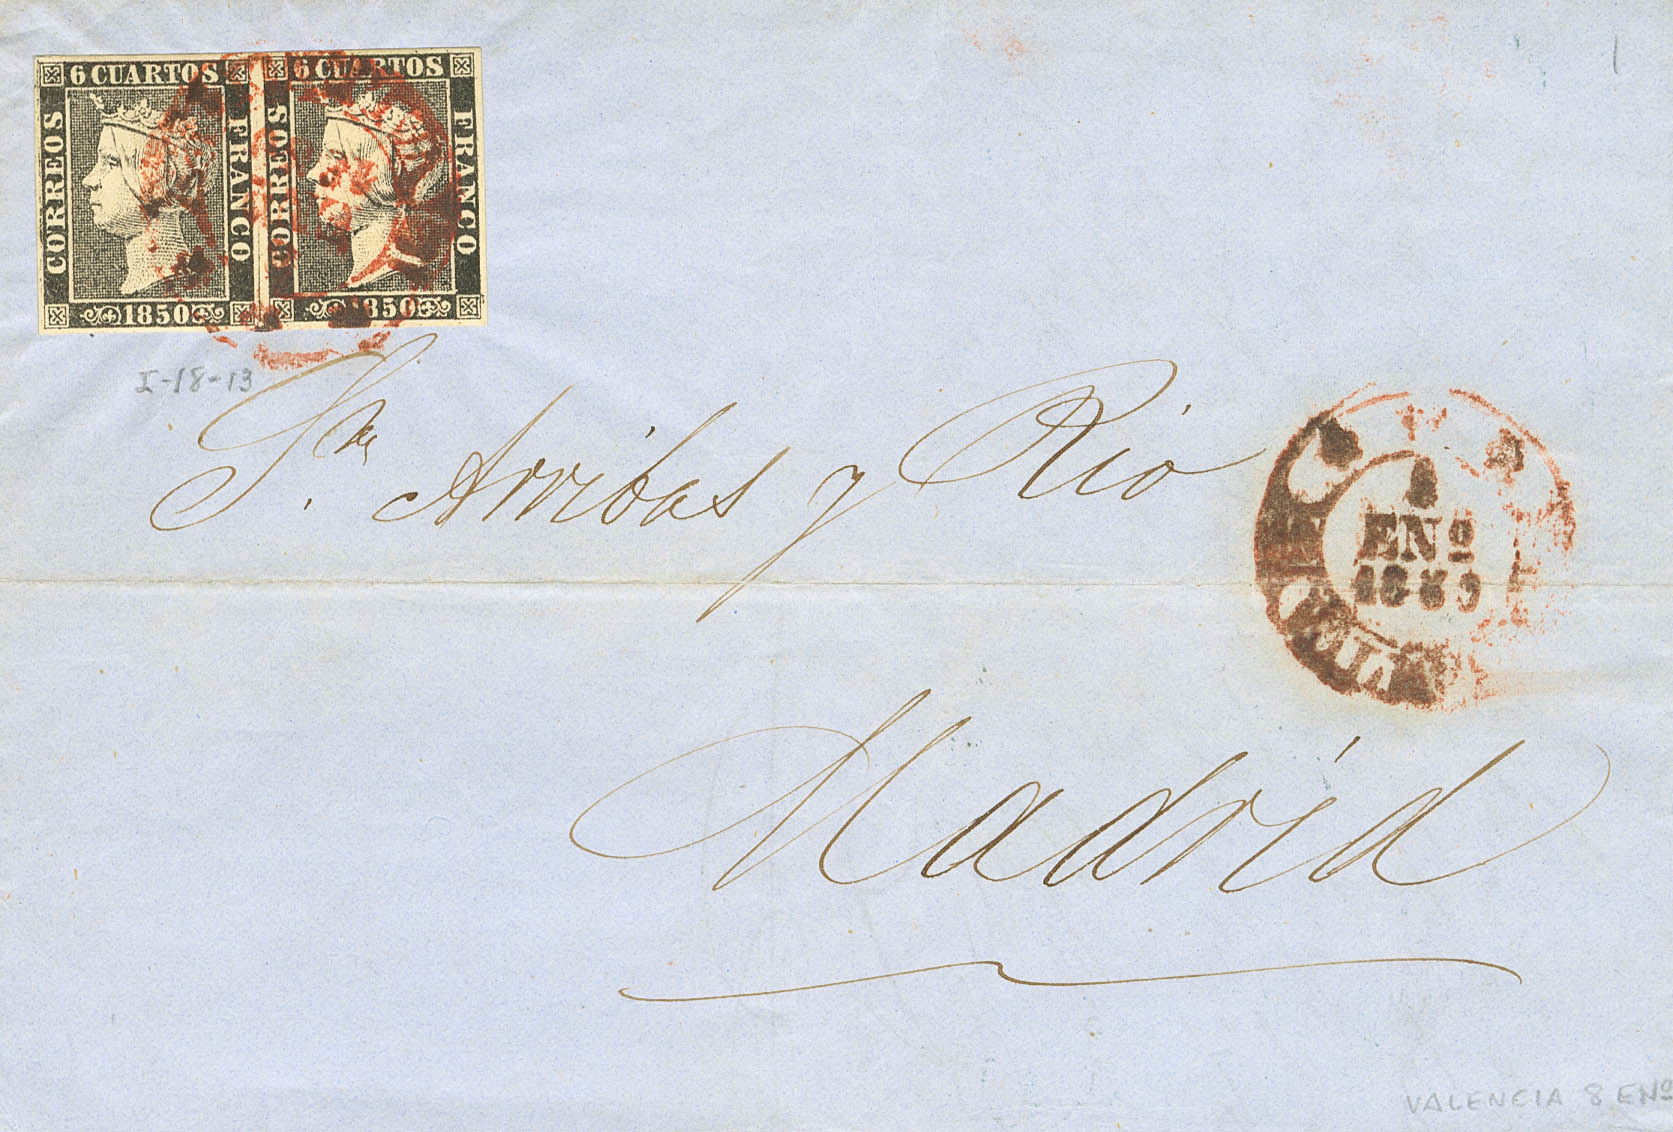 6 CUARTOS
CORREOS
FRANCO
1850
6 CUARTOS
CORREOS
FRANCO
1850
I-18-13
Sres. Arribas y Rio
ENº
Madrid
VALENCIA 8 ENº